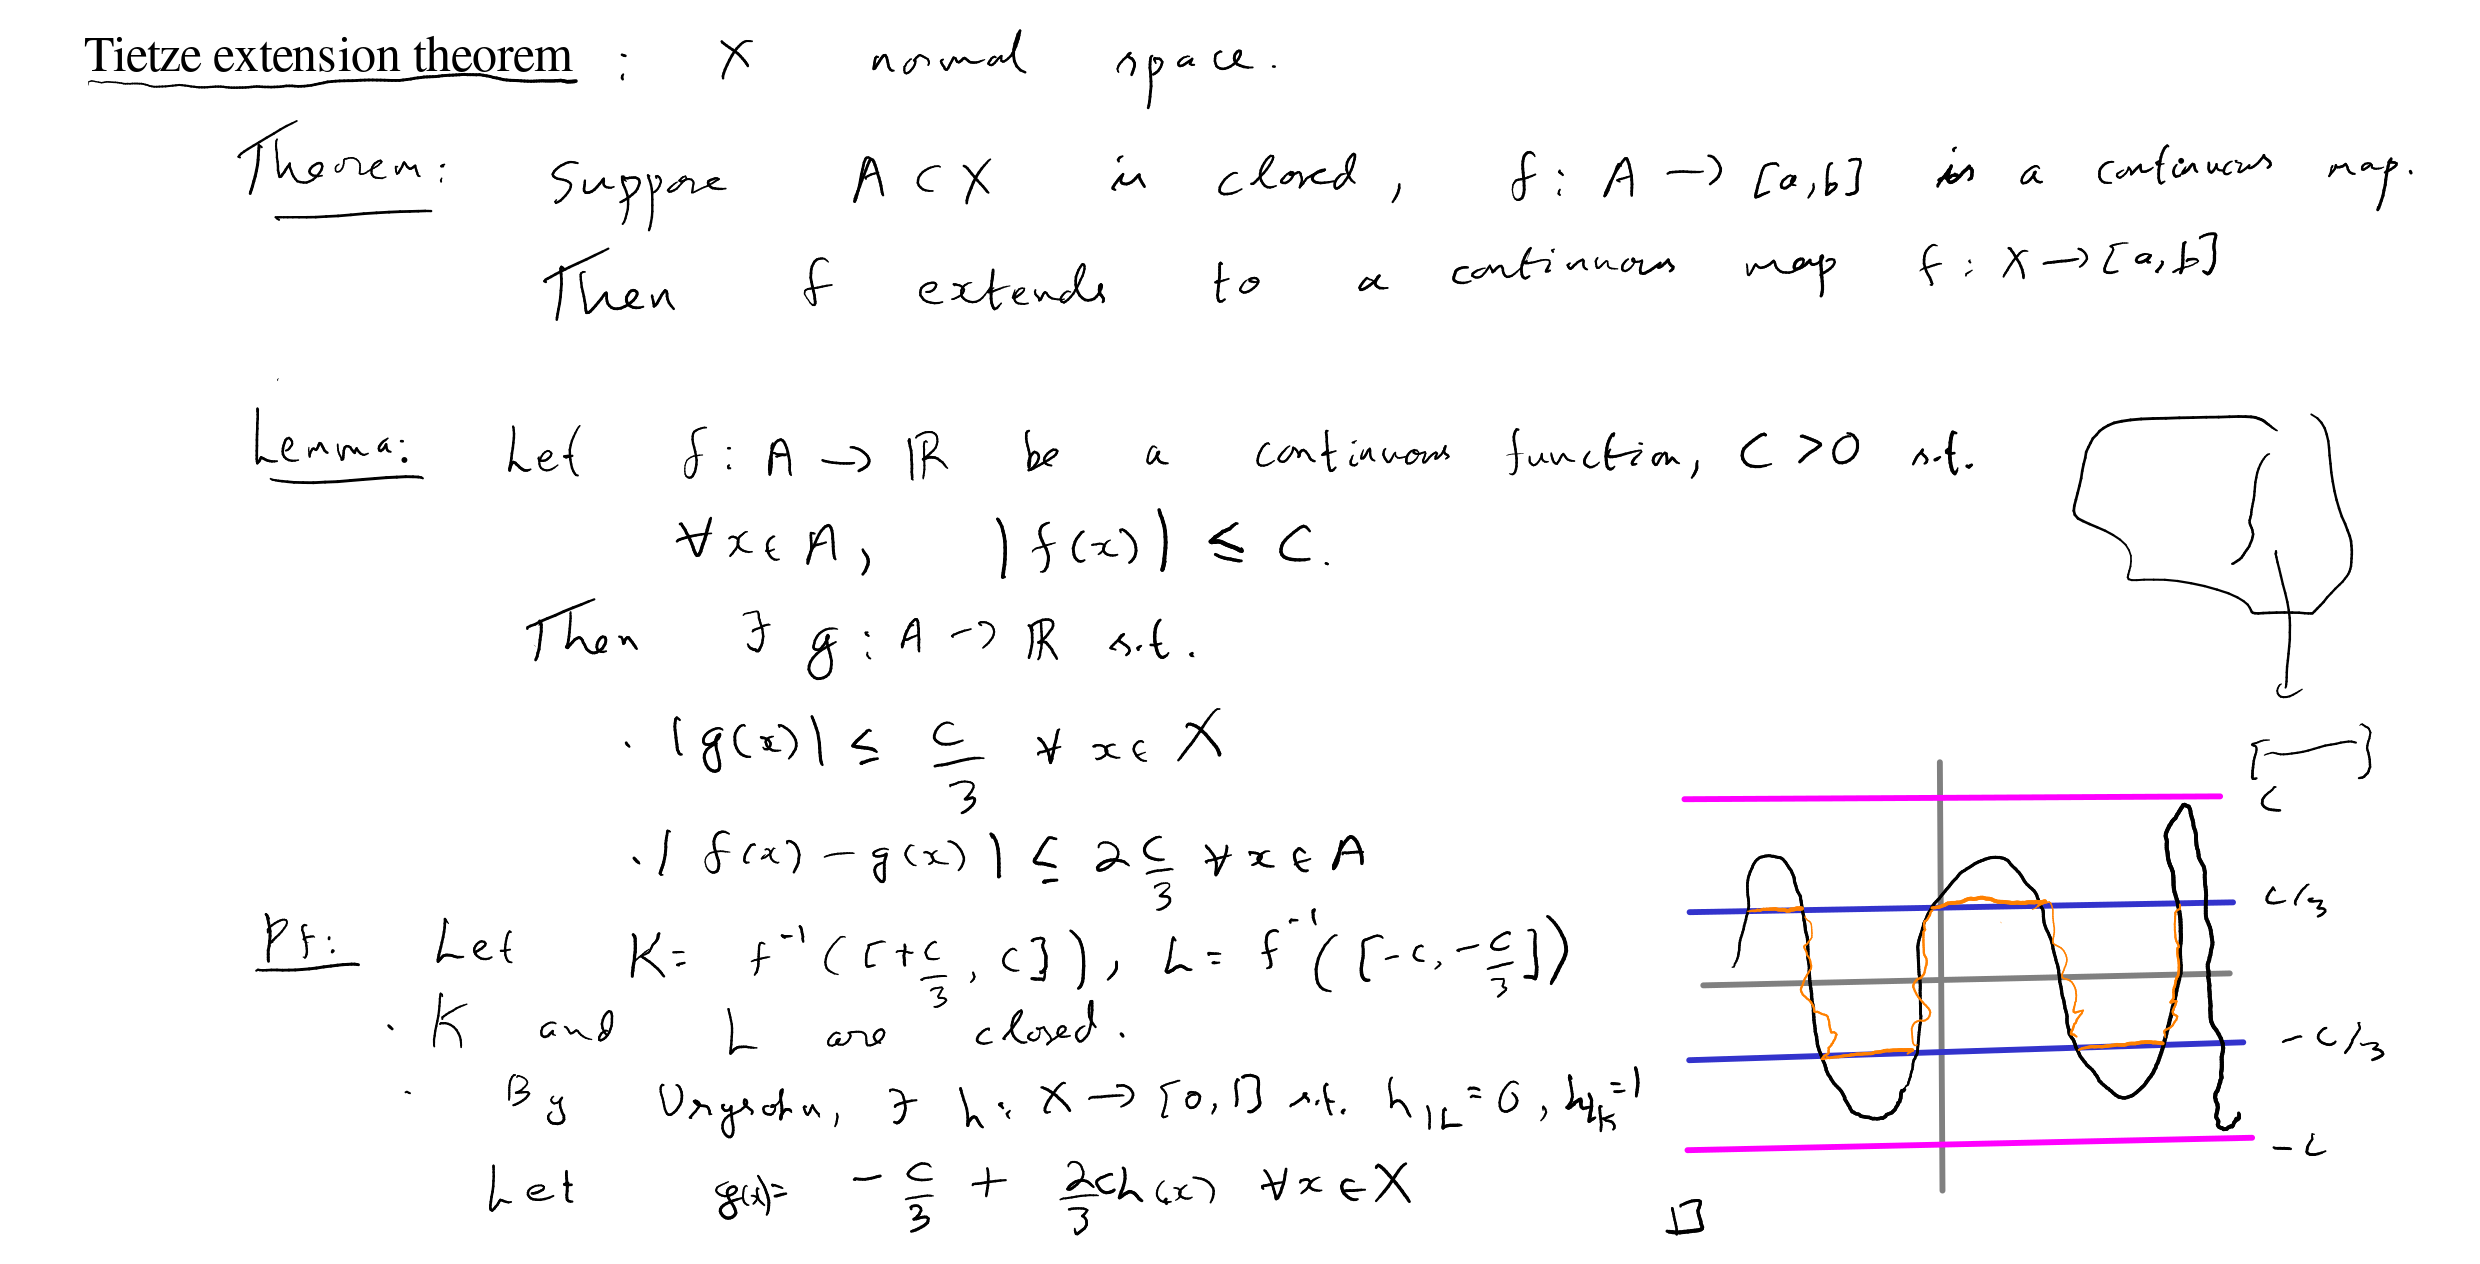 Tietze extension theorem : X normal space.
Theorem: Suppose A ⊂ X is closed, f : A → [a,b] is a continuous map.
Then f extends to a continuous map f : X → [a,b]
Lemma: Let f : A → ℝ be a continuous function, C > 0 s.t.
∀ x ∈ A, |f(x)| ≤ C.
Then ∃ g : A → ℝ s.t.
· |g(x)| ≤ C/3 ∀ x ∈ X
· |f(x) - g(x)| ≤ 2 C/3 ∀ x ∈ A
Pf: Let K = f⁻¹([+C/3, C]), L = f⁻¹([-C, -C/3])
· K and L are closed.
· By Urysohn, ∃ h : X → [0,1] s.t. h|L = 0, h|K = 1
Let g(x) = - C/3 + 2/3 C h(x) ∀ x ∈ X
[ ]
C
C/3
-C/3
-C